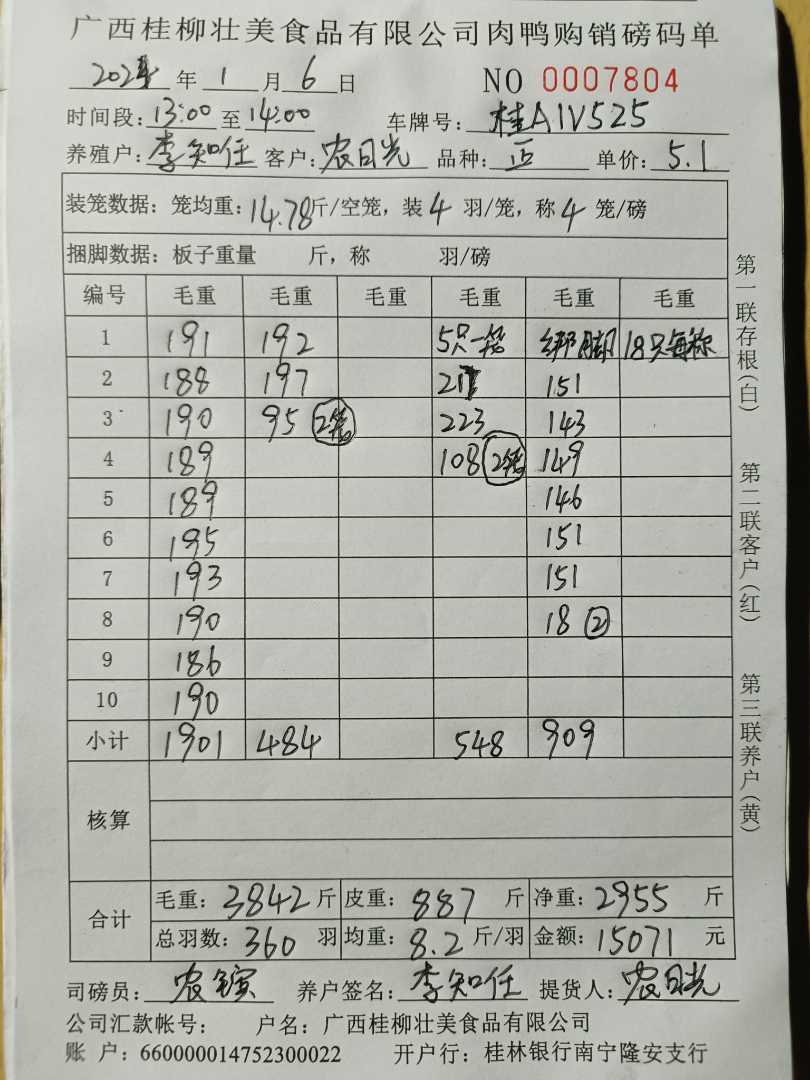 广西桂柳壮美食品有限公司肉鸭购销磅码单
2024 年 1 月 6 日 NO 0007804
时间段: 13:00 至 14:00 车牌号: 桂A1V525
养殖户: 李知任 客户: 农日光 品种: 正 单价: 5.1
装笼数据: 笼均重: 14.78 斤/空笼, 装 4 羽/笼, 称 4 笼/磅
捆脚数据: 板子重量 斤, 称 羽/磅
编号 毛重 毛重 毛重 毛重 毛重 毛重
1 191 192 5只一笼 绑脚 18只每称
2 188 197 217 151
3 190 95 2笼 223 143
4 189 108 2笼 149
5 189 146
6 195 151
7 193 151
8 190 18 2
9 186
10 190
小计 1901 484 548 909
核算
合计
毛重: 3842 斤 皮重: 887 斤 净重: 2955 斤
总羽数: 360 羽 均重: 8.2 斤/羽 金额: 15071 元
司磅员: 农 养户签名: 李知任 提货人: 农日光
公司汇款帐号: 户名: 广西桂柳壮美食品有限公司
账 户: 660000014752300022 开户行: 桂林银行南宁隆安支行
第一联存根(白)
第二联客户(红)
第三联养户(黄)